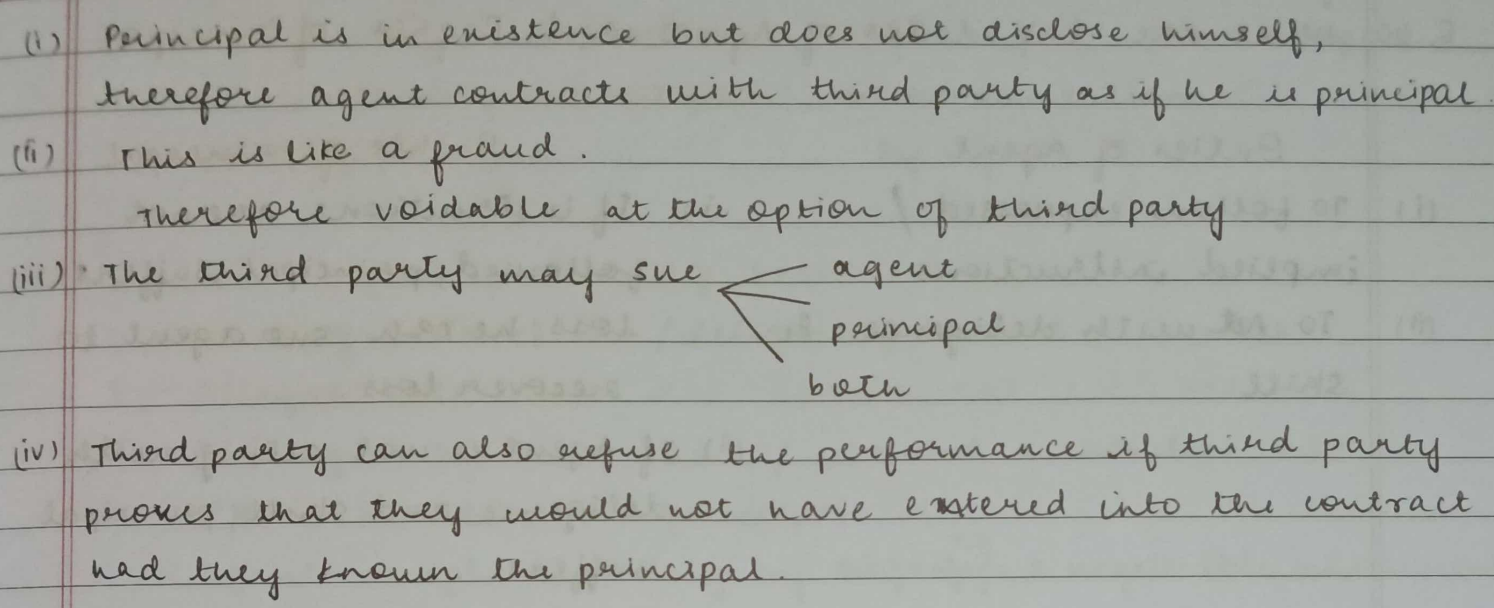 (i) Principal is in existence but does not disclose himself,
therefore agent contracts with third party as if he is principal.
(ii) This is like a fraud.
Therefore voidable at the option of third party
(iii) The third party may sue agent
principal
both
(iv) Third party can also refuse the performance if third party
proves that they would not have entered into the contract
had they known the principal.